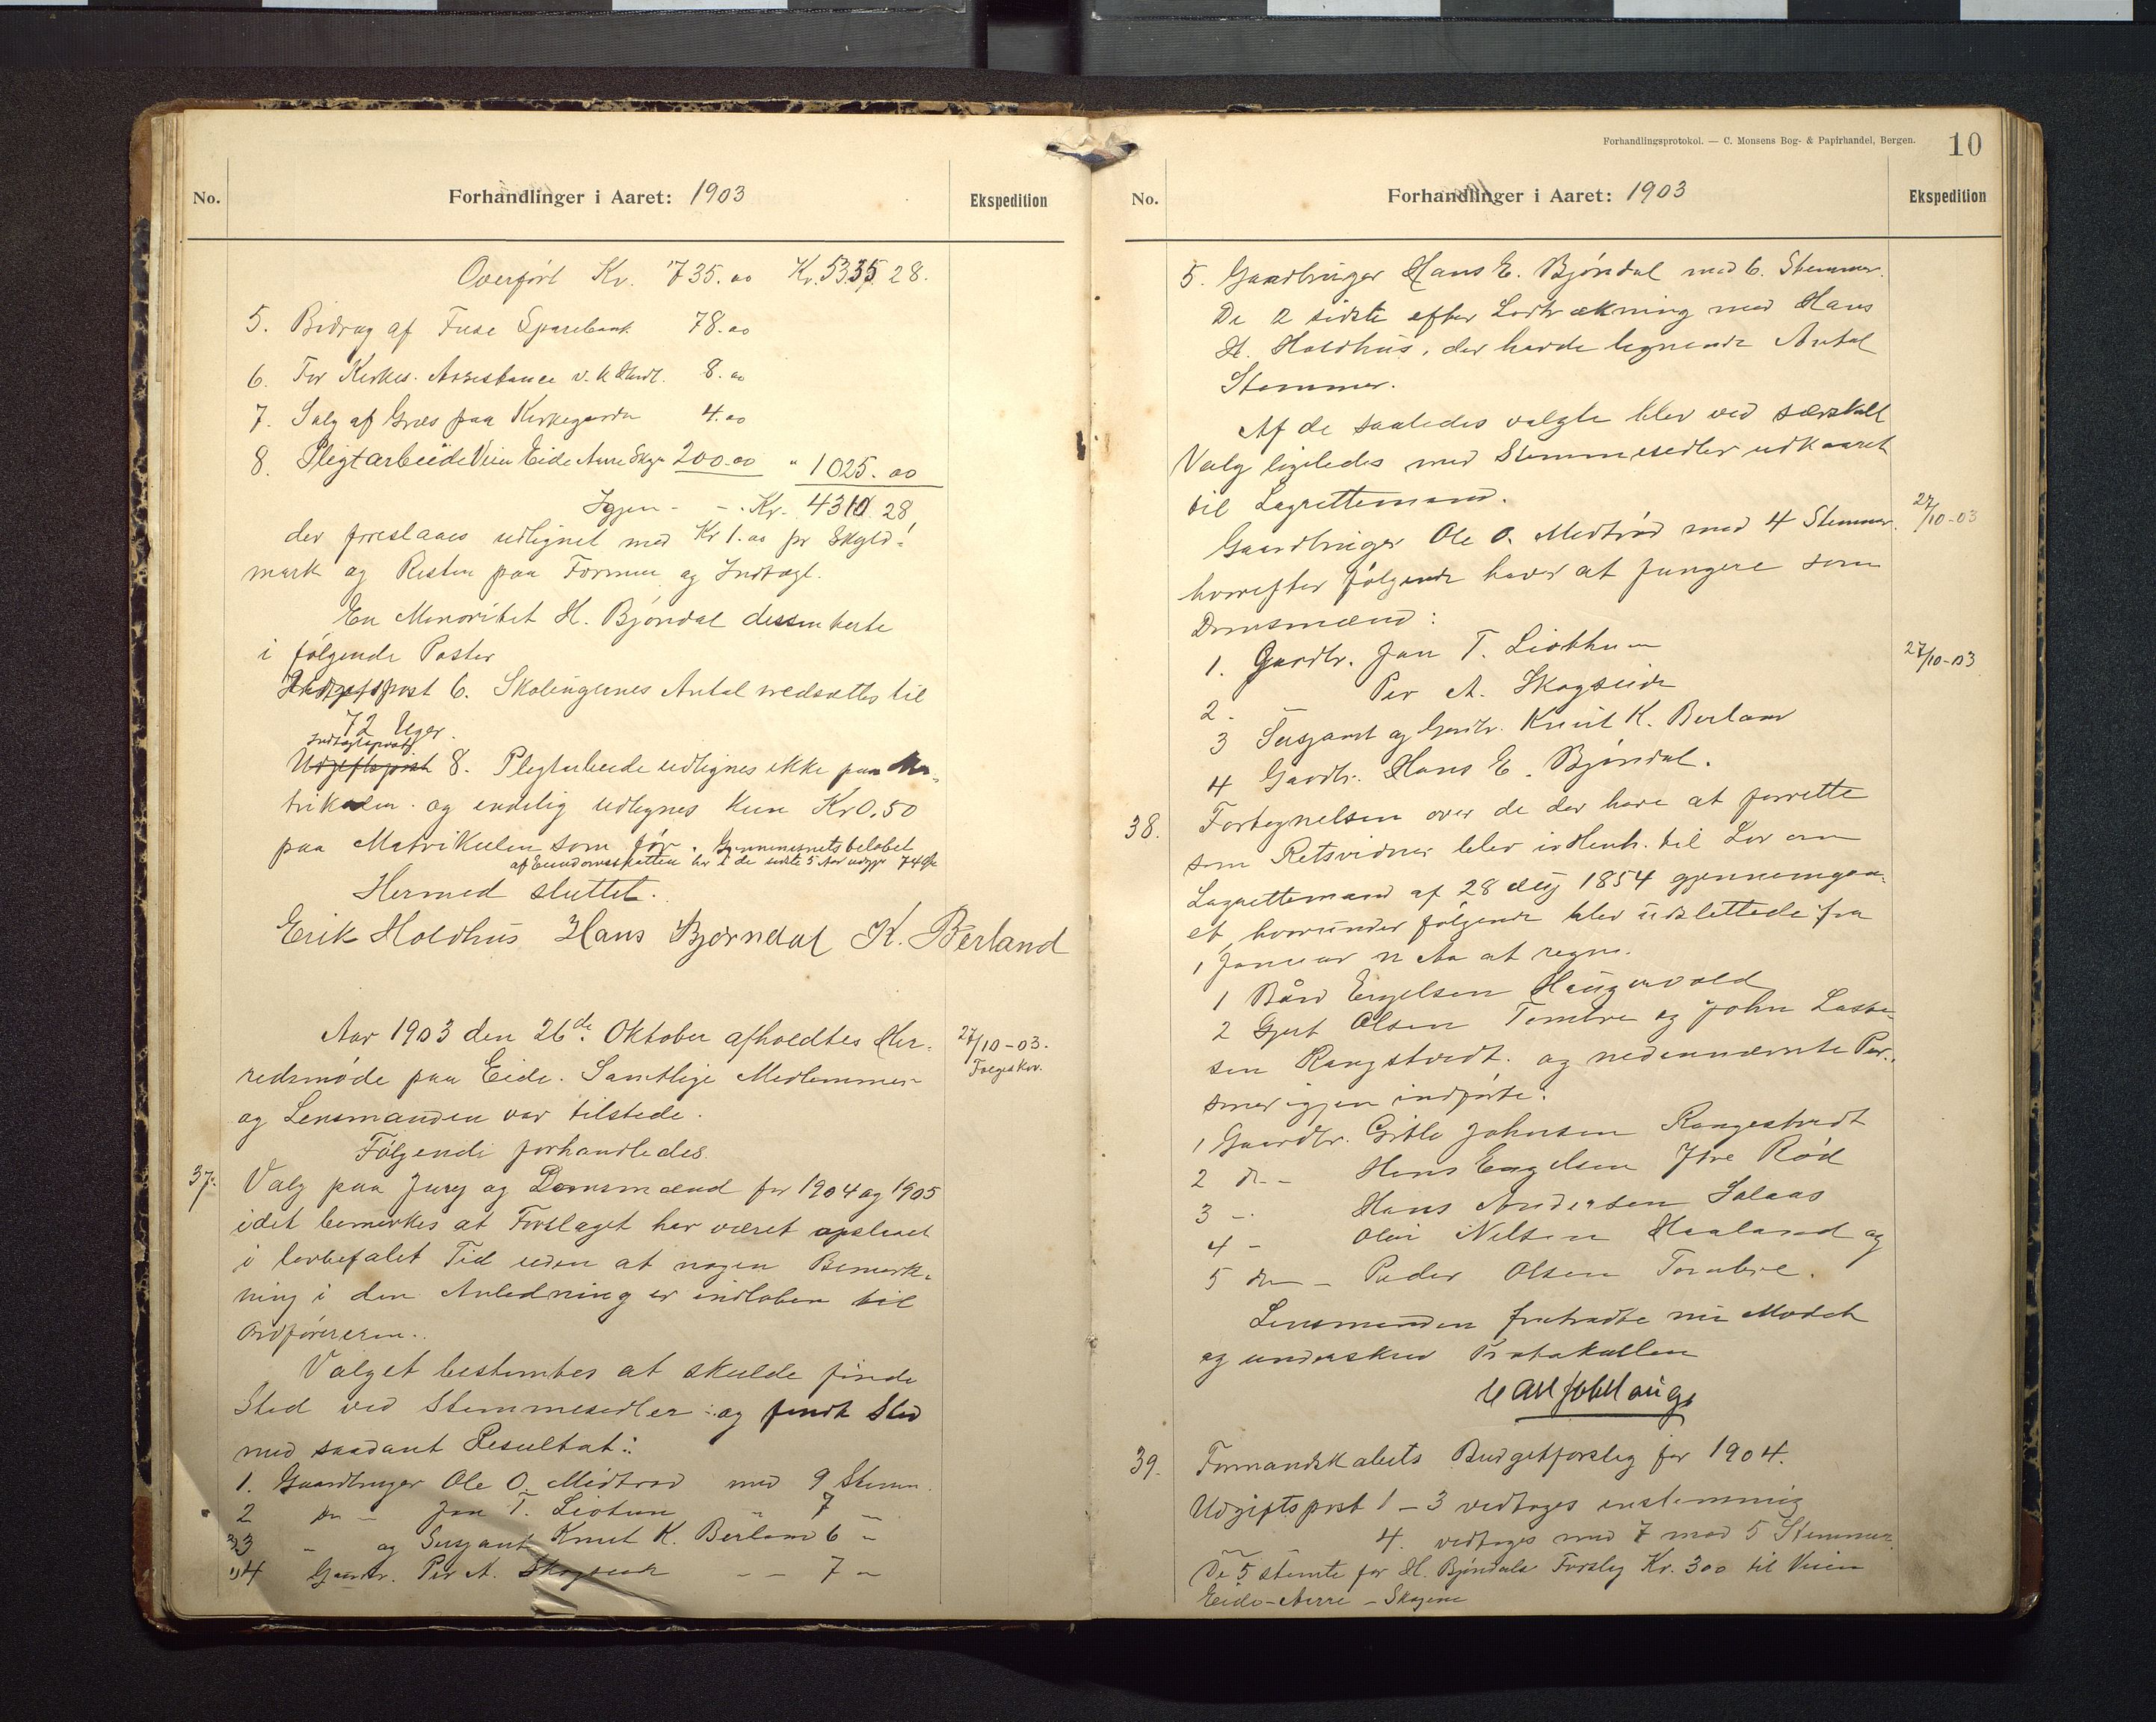 No.
Forhandlinger i Aaret: 1903
Ekspedition
Overført Kr. 735.00 Kr. 5335.28.
5. Bidrag af Fuse Sparebank 78.00
6. For Kirkes. Assistance v.
8.00
7. Salg af Græs paa Kirkegarden 4.00
8. Pligtarbeide Veien Eide Aurre Skge 200.00 " 1025.00
Igjen - - Kr. 4310 28
der foreslaaes udlignet med Kr 1.00 pr Skyld-
mark og Resten paa Formue og Indtægt.
En Minoritet H. Bjørndal dessenterte
i følgende Poster
Udgiftspost 6. Skolingernes Antal nedsættes til
72 Uger.
Indtægtspost
Udgiftspost 8. Pligtarbeide udlignes ikke paa Ma-
trikulen og endelig udlignes kun Kr 0,50
paa Matrikulen som før. Gjennemsnitsbeløbet
af Eiendomsskatten har i de sidste 5 Aar udgjr 74 Øre
Hermed sluttet.
Erik Holdhus Hans Bjørndal K. Berland
Aar 1903 den 26de Oktober afholdtes Her-
redsmøde paa Eide. Samtlige Medlemmer
og Lensmanden var tilstede.
27/10-03.
Følgeskr.
Følgende forhandledes.
37. Valg paa Jury og Domsmænd for 1904 og 1905
idet bemerkes at Forslaget har været opslaaet
i lovbefalet Tid uden at nogen Bemerk-
ning i den Anledning er indløben til
Ordføreren.
Valget bestemtes at skulde finde
Sted ved Stemmesedler: og fandt Sted
med saadant Resultat:
1. Gaardbruger Ole O. Midtrød med 9 Stemm.
2 do - Jan T. Liothun " 7 -
3 - og Sersjant Knut K. Berland 6 -
4 Gaardbr. Per A. Skogseide - - 7 -
Forhandlingsprotokol. — C. Monsens Bog- & Papirhandel, Bergen.
10
No.
Forhandlinger i Aaret: 1903
Ekspedition
5. Gaardbruger Hans E. Bjørndal med 6. Stemmer.
De 2 sidste efter Lodtrækning med Hans
H. Holdhus, der havde lignende Antal
Stemmer.
Af de saaledes valgte blev ved særskilt
Valg ligeledes med Stemmesedler udkaaret
til Lagrettemand.
Gaardbruger Ole O. Midtrød med 4 Stemmer.
27/10-03
hvorefter følgende haver at fungere som
Domsmænd:
1. Gaardbr. Jan T. Liothun
27/10-03
2. Per A. Skogseide
3 Sersjant og Gardbr. Knut K. Berland
4 Gardbr. Hans E. Bjørndal.
38. Fortegnelsen over de der have at forrette
som Retsvidner blev i Henh. til Lov om
Lagrettemænd af 28 1854 gjennemgaa-
et, hvorunder følgende blev udslettede fra
1 Januar n Aa at regne.
1 Bård Engelsen Haugervold
2 Gjert Olsen Tombre og John Lasse-
sen Rangstvedt. og nedennævnte Per-
soner igjen indførte:
1 Gaardbr. Gitle Johnsen Rangestvedt
2 do - Hans Engelsen Ytre Rød
3 - Hans Andersen Solaas
4 - Nilsen Haaland og
5 do - Peder Olsen Tombre.
Lensmanden fratraadte nu Mødet
og underskrev Protokollen
39. Formandskabets Budgetforslag for 1904.
Udgiftspost 1 - 3 vedtoges enstemmig
4. vedtoges med 7 mod 5 Stemmer.
De 5 stemte for H. Bjørndals Forslag Kr. 300 til Veien
Eide - Aurre - Skogene